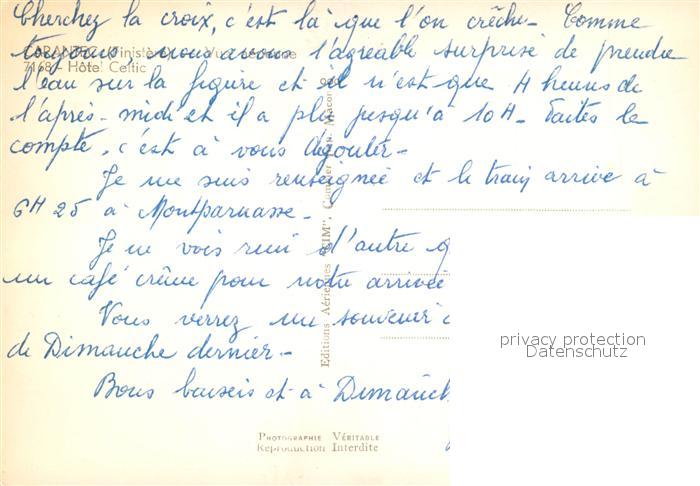 Cherchez la croix, c'est là que l'on crêche - Comme
toujours, nous avons l'agréable surprise de prendre
CARANTEC (Finistère) - Vue aérienne
7168 - Hôtel Celtic
l'eau sur la figure et il n'est que 4 heures de
l'après-midi et il a plu jusqu'à 10H - Faites le
compte, c'est à vous dégouter -
Je me suis renseignée et le train arrive à
6H 25 à Montparnasse -
Je ne vois rien d'autre
un café crême pour notre arrivée
Vous verrez un souvenir
de Dimanche dernier -
Bons baisers et à Dimanch
Editions Aériennes "CIM", Combier Imp. Macon
PHOTOGRAPHIE VÉRITABLE
Reproduction Interdite
privacy protection
Datenschutz